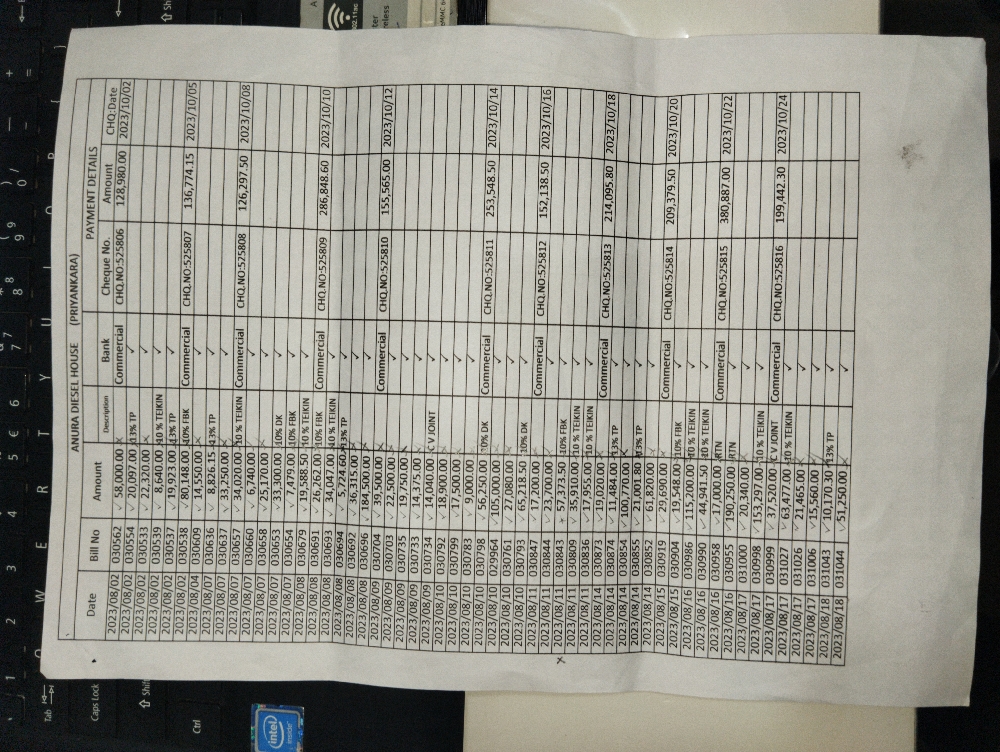 ANURA DIESEL HOUSE (PRIYANKARA)
PAYMENT DETAILS
Date Bill No Amount Description Bank Cheque No. Amount CHQ:Date
2023/08/02 030562 ✓ 58,000.00 Commercial CHQ.NO:525806 128,980.00 2023/10/02
2023/08/02 030554 ✓ 20,097.00 13% TP ✓
2023/08/02 030533 ✓ 22,320.00 ✓
2023/08/02 030539 ✓ 8,640.00 10 % TEIKIN ✓
2023/08/02 030537 ✓ 19,923.00 13% TP ✓
2023/08/02 030538 ✓ 80,148.00 10% FBK Commercial CHQ.NO:525807 136,774.15 2023/10/05
2023/08/04 030609 ✓ 14,550.00 ✓
2023/08/07 030636 ✓ 8,826.15 13% TP ✓
2023/08/07 030637 ✓ 33,250.00 ✓
2023/08/07 030657 ✓ 34,020.00 10 % TEIKIN Commercial CHQ.NO:525808 126,297.50 2023/10/08
2023/08/07 030660 ✓ 6,740.00 ✓
2023/08/07 030658 ✓ 25,170.00 ✓
2023/08/07 030653 ✓ 33,300.00 10% DK ✓
2023/08/07 030654 ✓ 7,479.00 10% FBK ✓
2023/08/08 030679 ✓ 19,588.50 10 % TEIKIN ✓
2023/08/08 030691 ✓ 26,262.00 10% FBK Commercial CHQ.NO:525809 286,848.60 2023/10/10
2023/08/08 030693 ✓ 34,047.00 10 % TEIKIN ✓
2023/08/08 030694 ✓ 5,724.60 13% TP ✓
2023/08/08 030692 ✓ 36,315.00 ✓
2023/08/09 030696 ✓ 184,500.00 ✓
2023/08/09 030704 ✓ 39,500.00 Commercial CHQ.NO:525810 155,565.00 2023/10/12
2023/08/09 030703 ✓ 22,500.00 ✓
2023/08/09 030735 ✓ 19,750.00 ✓
2023/08/09 030733 ✓ 14,375.00 ✓
2023/08/09 030734 ✓ 14,040.00 C V JOINT ✓
2023/08/10 030792 ✓ 18,900.00 ✓
2023/08/10 030799 ✓ 17,500.00 ✓
2023/08/10 030783 ✓ 9,000.00 ✓
2023/08/10 030798 ✓ 56,250.00 10% DK Commercial CHQ.NO:525811 253,548.50 2023/10/14
2023/08/10 029964 ✓ 105,000.00 ✓
2023/08/10 030761 ✓ 27,080.00 ✓
2023/08/10 030793 ✓ 65,218.50 10% DK ✓
2023/08/11 030847 ✓ 17,200.00 Commercial CHQ.NO:525812 152,138.50 2023/10/16
2023/08/11 030844 ✓ 23,700.00 ✓
2023/08/11 030843 ✓ 57,373.50 10% FBK ✓
2023/08/11 030809 ✓ 35,910.00 10 % TEIKIN ✓
2023/08/11 030836 ✓ 17,955.00 10 % TEIKIN ✓
2023/08/14 030873 ✓ 19,020.00 Commercial CHQ.NO:525813 214,095.80 2023/10/18
2023/08/14 030874 ✓ 11,484.00 13% TP ✓
2023/08/14 030854 ✓ 100,770.00 ✓
2023/08/14 030855 ✓ 21,001.80 13% TP ✓
2023/08/14 030852 ✓ 61,820.00 ✓
2023/08/15 030919 ✓ 29,690.00 Commercial CHQ.NO:525814 209,379.50 2023/10/20
2023/08/15 030904 ✓ 19,548.00 10% FBK ✓
2023/08/16 030986 ✓ 115,200.00 10 % TEIKIN ✓
2023/08/16 030990 ✓ 44,941.50 10 % TEIKIN ✓
2023/08/16 030958 ✓ 17,000.00 RTN Commercial CHQ.NO:525815 380,887.00 2023/10/22
2023/08/16 030955 ✓ 190,250.00 RTN ✓
2023/08/17 031000 ✓ 20,340.00 ✓
2023/08/17 030998 ✓ 153,297.00 10 % TEIKIN ✓
2023/08/17 030999 ✓ 37,520.00 C V JOINT Commercial CHQ.NO:525816 199,442.30 2023/10/24
2023/08/17 031027 ✓ 63,477.00 10 % TEIKIN ✓
2023/08/17 031026 ✓ 21,465.00 ✓
2023/08/17 031006 ✓ 15,560.00 ✓
2023/08/18 031043 ✓ 10,170.30 13% TP ✓
2023/08/18 031044 ✓ 51,250.00 ✓
Tab
Caps Lock
Shift
Ctrl
intel
inside
W E R T Y U I O P